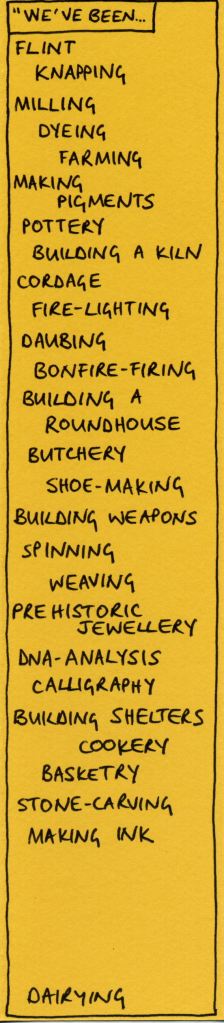 "WE'VE BEEN...
FLINT
KNAPPING
MILLING
DYEING
FARMING
MAKING
PIGMENTS
POTTERY
BUILDING A KILN
CORDAGE
FIRE-LIGHTING
DAUBING
BONFIRE-FIRING
BUILDING A
ROUNDHOUSE
BUTCHERY
SHOE-MAKING
BUILDING WEAPONS
SPINNING
WEAVING
PREHISTORIC
JEWELLERY
DNA-ANALYSIS
CALLIGRAPHY
BUILDING SHELTERS
COOKERY
BASKETRY
STONE-CARVING
MAKING INK
DAIRYING